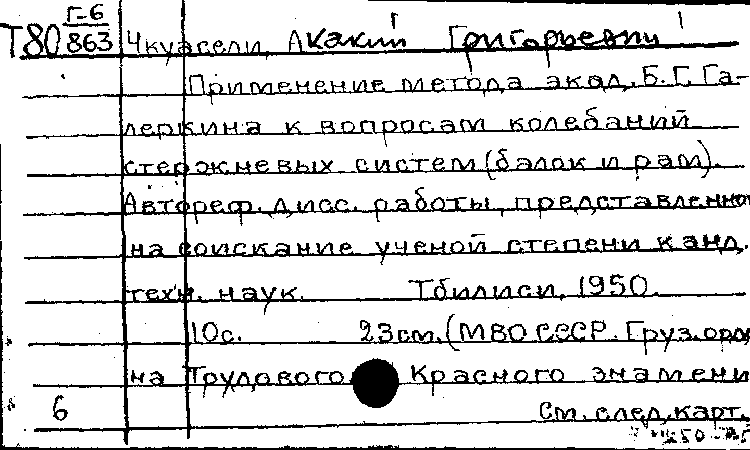 Г-6
Т80 863 Чкуасели, Акакий Григорьевич
Применение метода акад. Б.Г. Га-
леркина к вопросам колебаний
стержневых систем (балок и рам).
Автореф. дисс. работы, представленной
на соискание ученой степени канд.
техн. наук. Тбилиси, 1950.
10с. 23см. (МВО СССР. Груз. орде
на Трудового Красного знамени
6 См. след. карт.